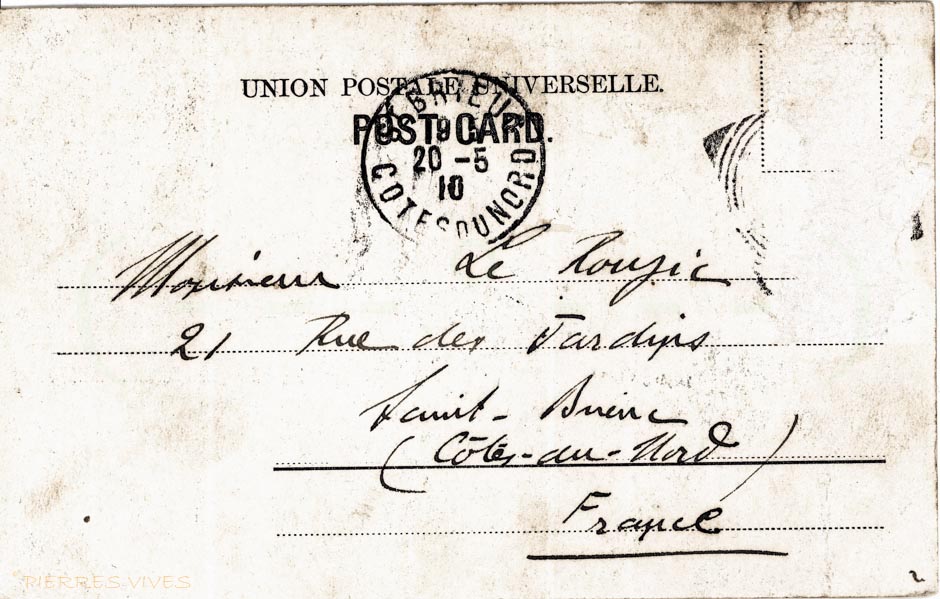 UNION POSTALE UNIVERSELLE.
POST CARD.
ST BRIEUC
20 -5
10
COTES DU NORD
Monsieur Le Rouzic
21 Rue des Jardins
Saint-Brieuc
(Côtes-du-Nord)
France
PIERRES VIVES
2